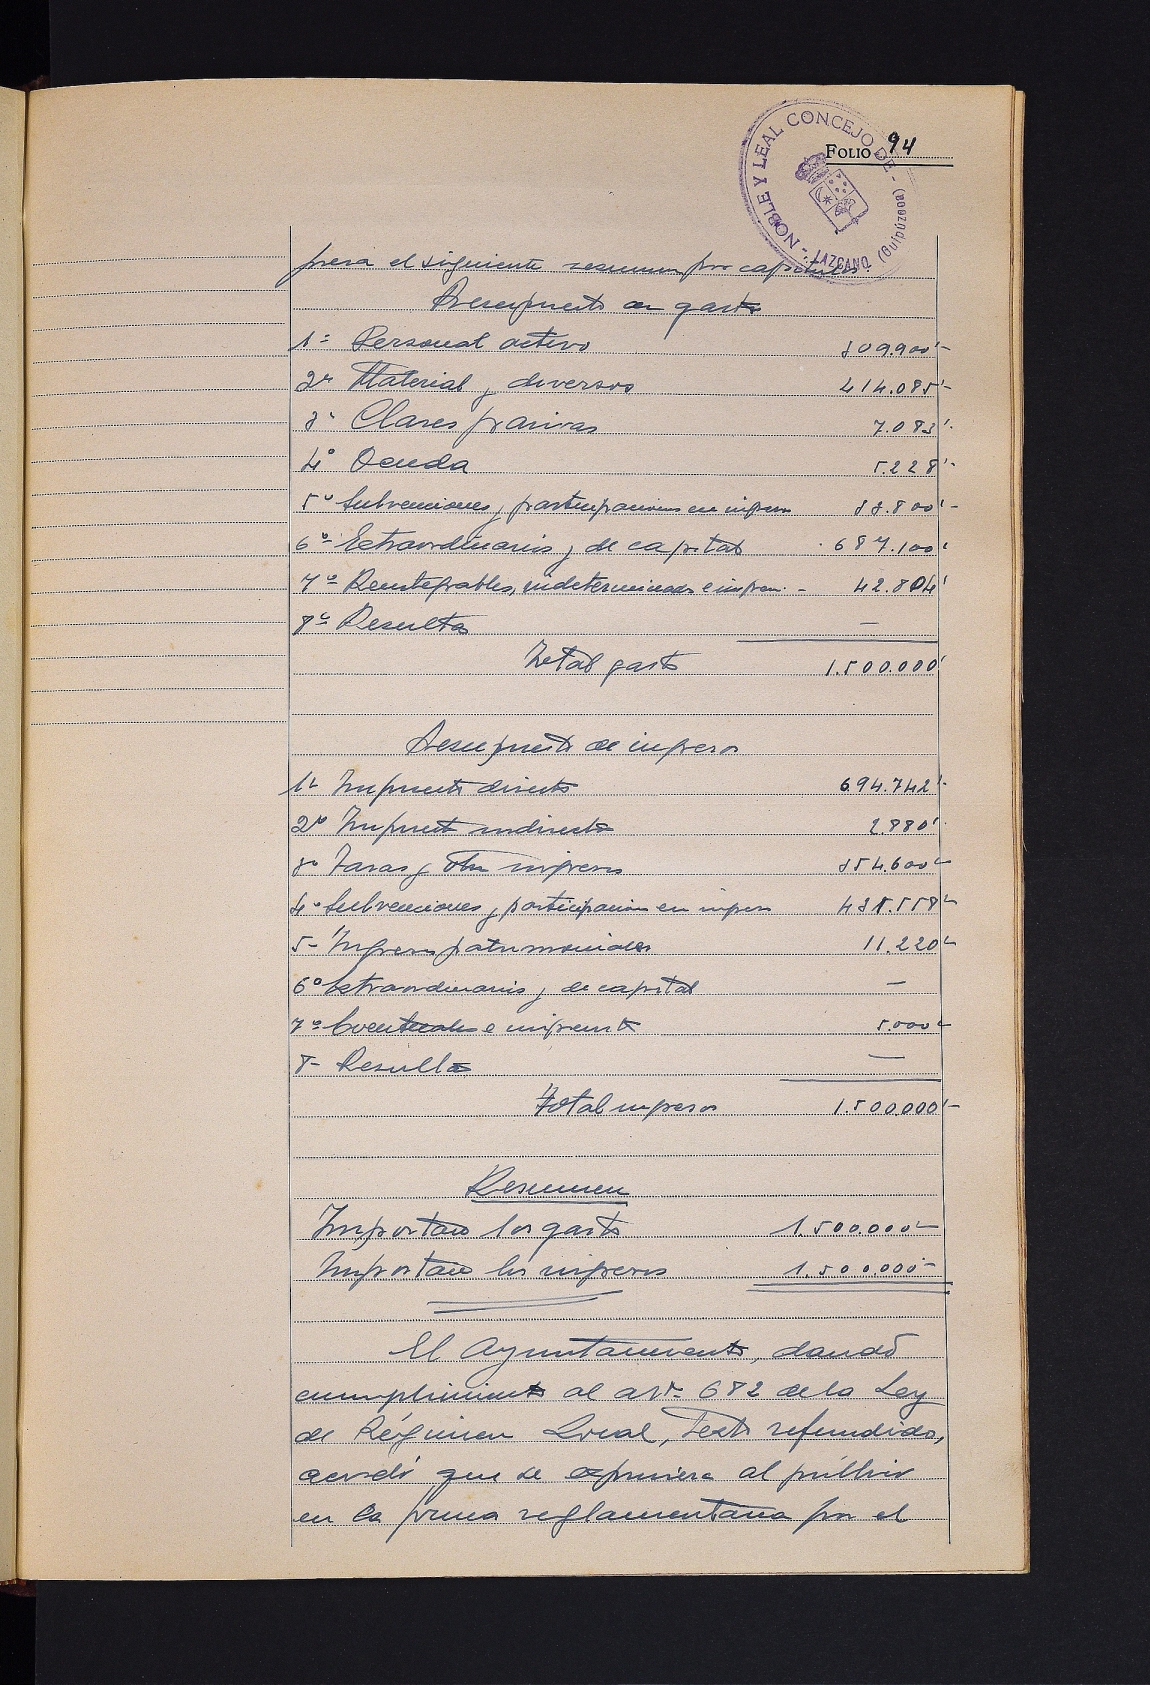 NOBLE Y LEAL CONCEJO DE - LAZCANO (Guipúzcoa)
FOLIO 94
presa el siguiente resumen por capitulos.
Presupuesto de gastos
1º Personal activo 309.900'-
2º Material y diversos 414.085'-
3º Clases pasivas 7.083'-
4º Deuda 5.228'-
5º Subvenciones y participaciones en ingresos 33.800'-
6º Extraordinarios y de capital 687.100'
7º Reintegrables, indeterminados e imprev. - 42.804'
8º Resultas —
Total gastos 1.500.000'
Presupuesto de ingresos
1º Impuestos directos 694.742'-
2º Impuestos indirectos 2.880'-
3º Tasas y otros ingresos 354.600'-
4º Subvenciones y participacion en ingresos 431.558'-
5- Ingresos patrimoniales 11.220'-
6º Extraordinarios y de capital —
7º Eventuales e imprevistos 5.000'-
8- Resultas —
Total ingresos 1.500.000'-
Resumen
Importan los gastos 1.500.000'-
Importan los ingresos 1.500.000'-
El Ayuntamiento, dando
cumplimiento al artº 682 de la Ley
de Régimen Local, Texto refundido,
acordó que se expusiera al público
en la forma reglamentaria por el